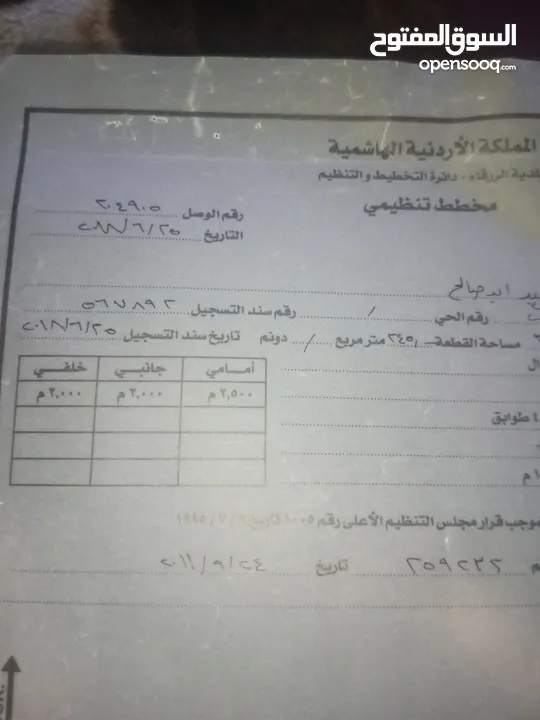 السوق المفتوح
opensooq.com
المملكة الأردنية الهاشمية
بلدية الزرقاء - دائرة التخطيط والتنظيم
مخطط تنظيمي
رقم الوصل ٢٠٤٩٠٥
التاريخ ٢٠١٨/٦/٢٥
ابو صالح
رقم الحي / رقم سند التسجيل ٥٦٧٨٩٢
مساحة القطعة ٢٤٥ متر مربع / دونم تاريخ سند التسجيل ٢٠١٨/٦/٢٥
أمامي جانبي خلفي
٢,٥٠٠ م ٢,٠٠٠ م ٢,٠٠٠ م
٤ طوابق
م
بموجب قرار مجلس التنظيم الأعلى رقم ١٠٠٥ تاريخ ١٩٩٥/٧/٩
٢٥٩٢٣٢ تاريخ ٢٠١١/٩/٢٤